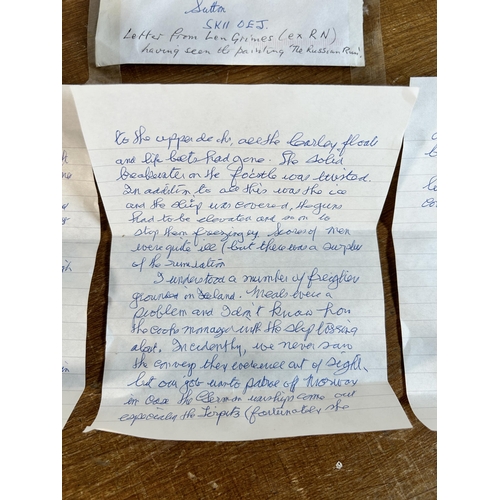 Sutton
SK11 0EJ.
Letter from Len Grimes (ex RN)
having seen the painting "The Russian Run"
to the upper deck, all the Carley floats
and life boats had gone. The solid
breakwater on the focstle was twisted.
In addition to all this was the ice
and the ship was covered, the guns
had to be elevated and so on to
stop them freezing up. Scores of men
were quite ill (but there was a surplus
of the rum ration
I understood a number of freighters
grounded on Iceland. Meals were a
problem and I don't know how
the cooks managed with the ship tossing
about. Incidently, we never saw
the convoy they were once out of sight,
but our job was to patrol off Norway
in case the German warships came out
especially the Tirpitz (fortunately she